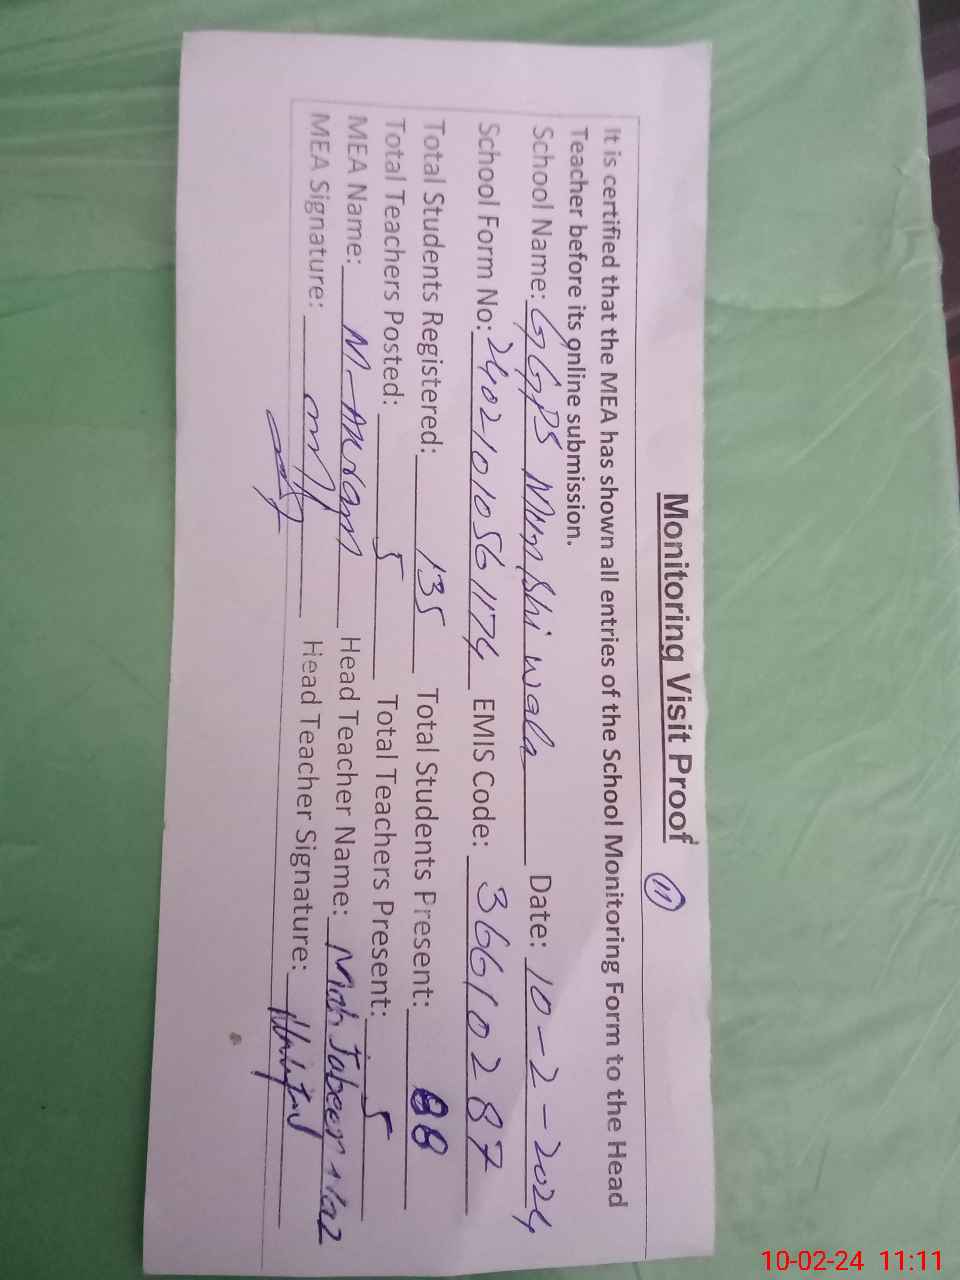 Monitoring Visit Proof
11
It is certified that the MEA has shown all entries of the School Monitoring Form to the Head
Teacher before its online submission.
School Name: GGPS Munshi wala Date: 10-2-2024
School Form No: 2402101056 1174 EMIS Code: 36610287
Total Students Registered: 135 Total Students Present: 88
Total Teachers Posted: 5 Total Teachers Present: 5
MEA Name: M-Akram Head Teacher Name: Mah Jabeen
MEA Signature: Head Teacher Signature:
10-02-24 11:11